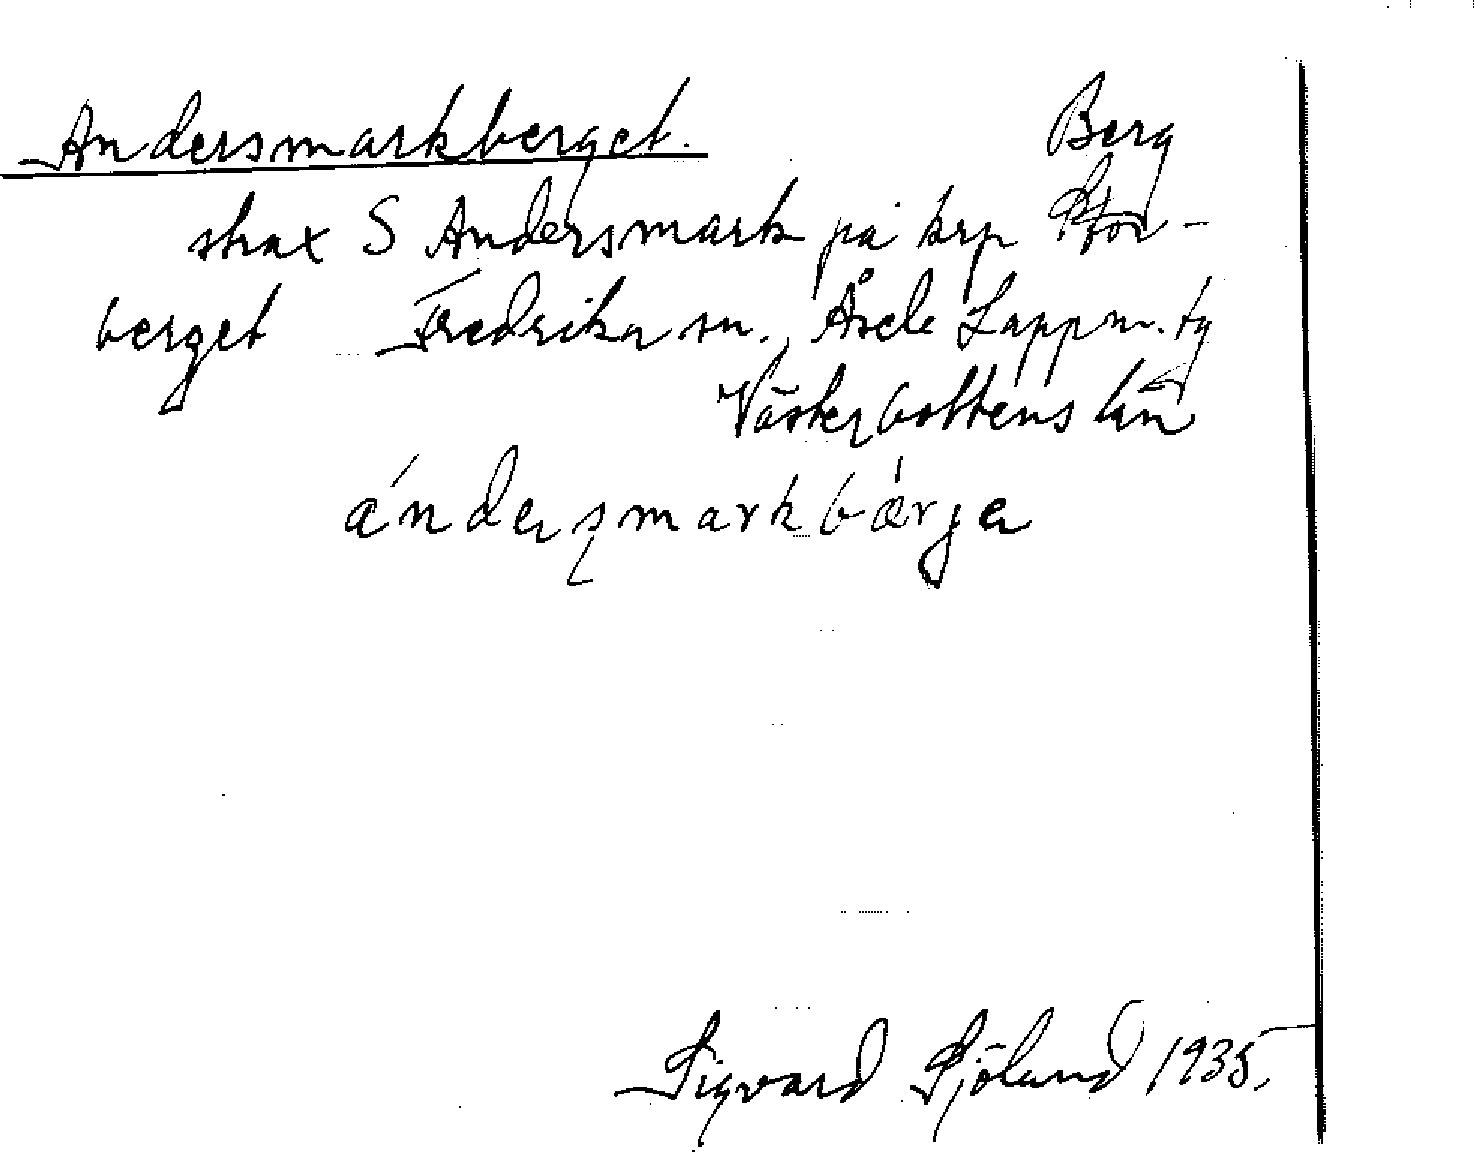 Andersmarkberget. Berg
strax S Andersmark på krp Stor-
berget Fredrika sn., Åsele Lappm. tg
Västerbottens län
ándeʂmarkbǽrjer
Sigvard Sjölund 1935.